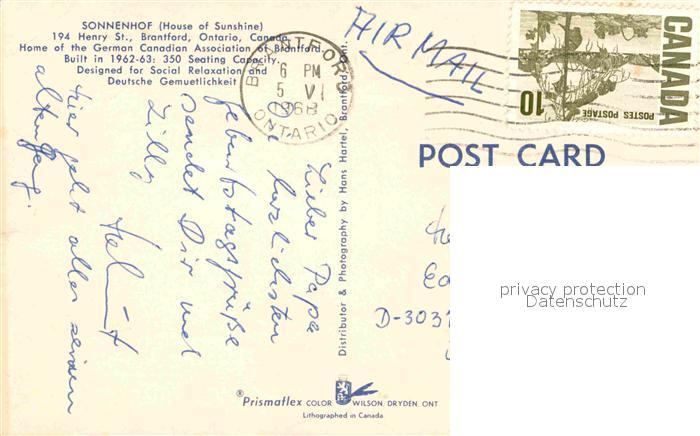 SONNENHOF (House of Sunshine)
194 Henry St., Brantford, Ontario, Canada
Home of the German Canadian Association of Brantford.
Built in 1962-63: 350 Seating Capacity.
Designed for Social Relaxation and
Deutsche Gemuetlichkeit
BRANTFORD
6 PM
5 VI
1968
ONTARIO
AIR MAIL
CANADA
POSTES POSTAGE
10
POST CARD
Lieber Papa
herzlichsten
Geburtstagsgrüße
sendet Dir und
Lilly
Helmut
Hier geht alles seinen
alten Gang.
Distributor & Photography by Hans Hartel, Brantford, Ont.
D-3031
privacy protection
Datenschutz
®Prismaflex COLOR WILSON, DRYDEN, ONT
Lithographed in Canada